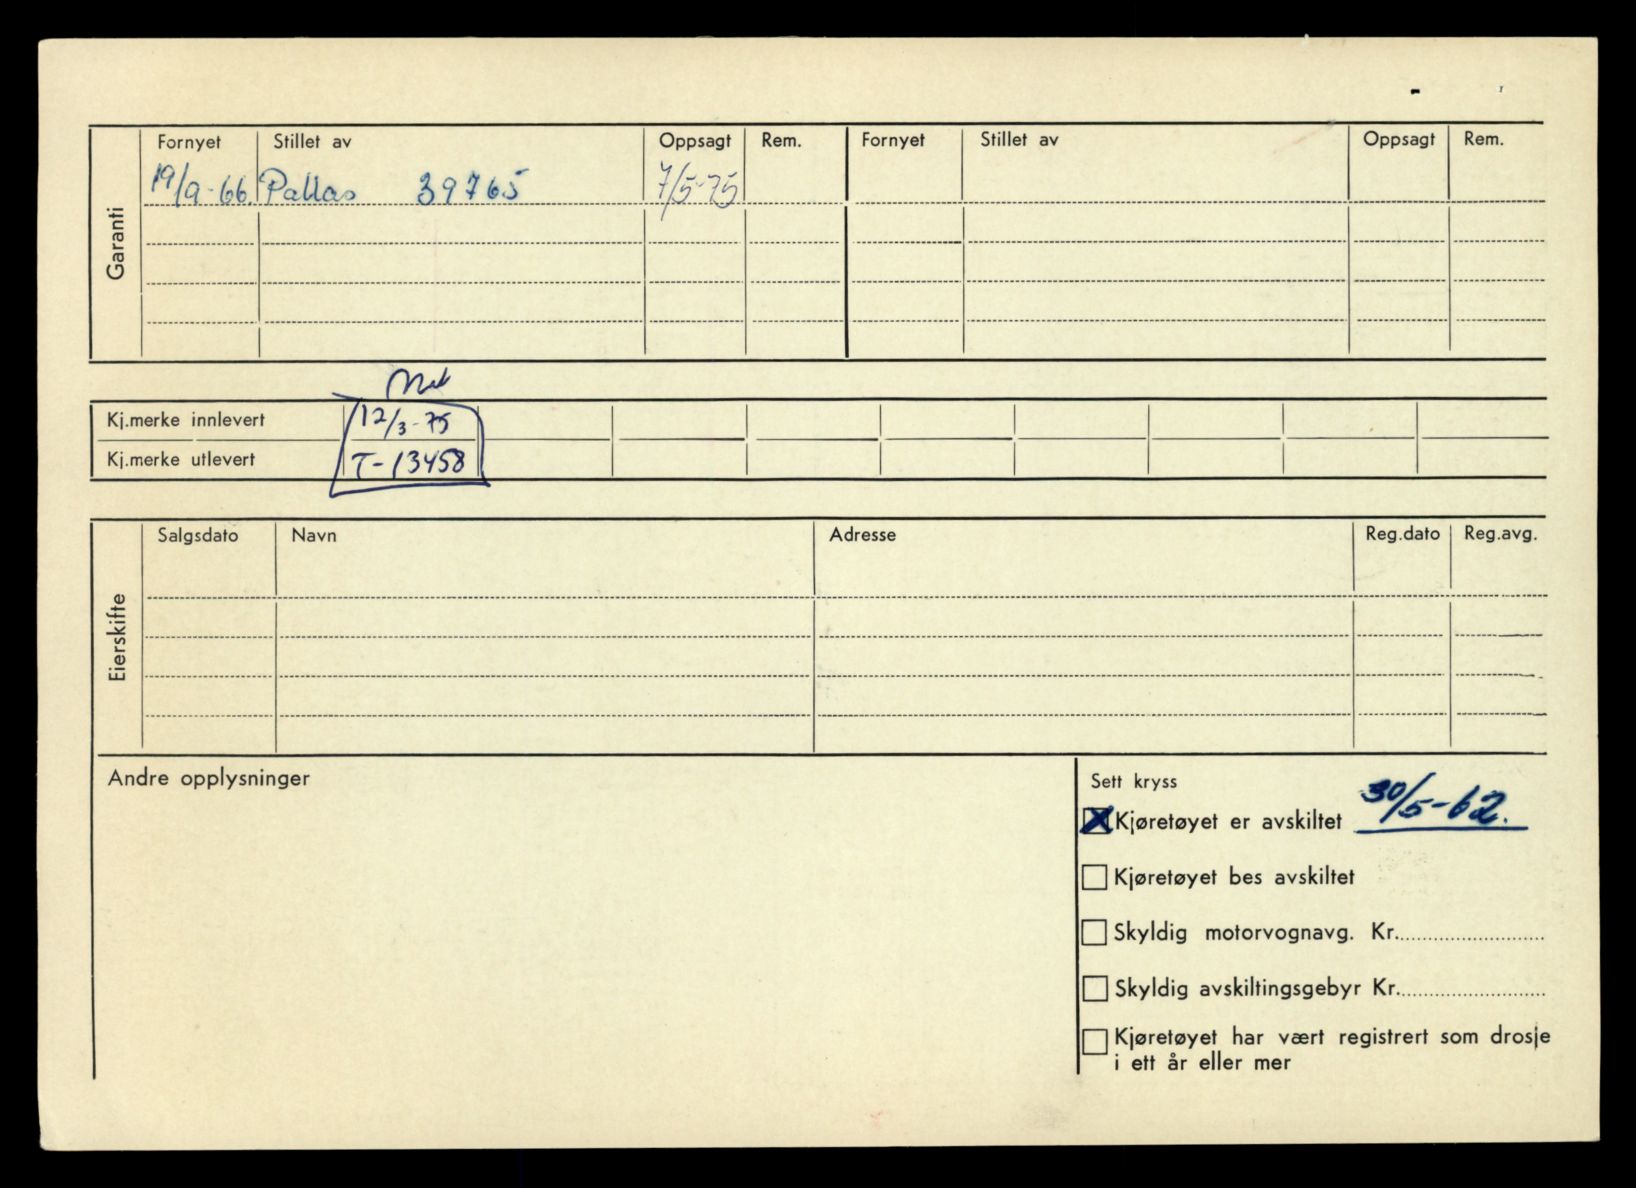 Garanti
Fornyet Stillet av Oppsagt Rem. Fornyet Stillet av Oppsagt Rem.
19/9-66. Pallas 39765 7/5-75
Kj.merke innlevert 12/3-75
Kj.merke utlevert T-13458
Eierskifte
Salgsdato Navn Adresse Reg.dato Reg.avg.
Andre opplysninger
Sett kryss
Kjøretøyet er avskiltet 30/5-62.
Kjøretøyet bes avskiltet
Skyldig motorvognavg. Kr.
Skyldig avskiltingsgebyr Kr.
Kjøretøyet har vært registrert som drosje
i ett år eller mer